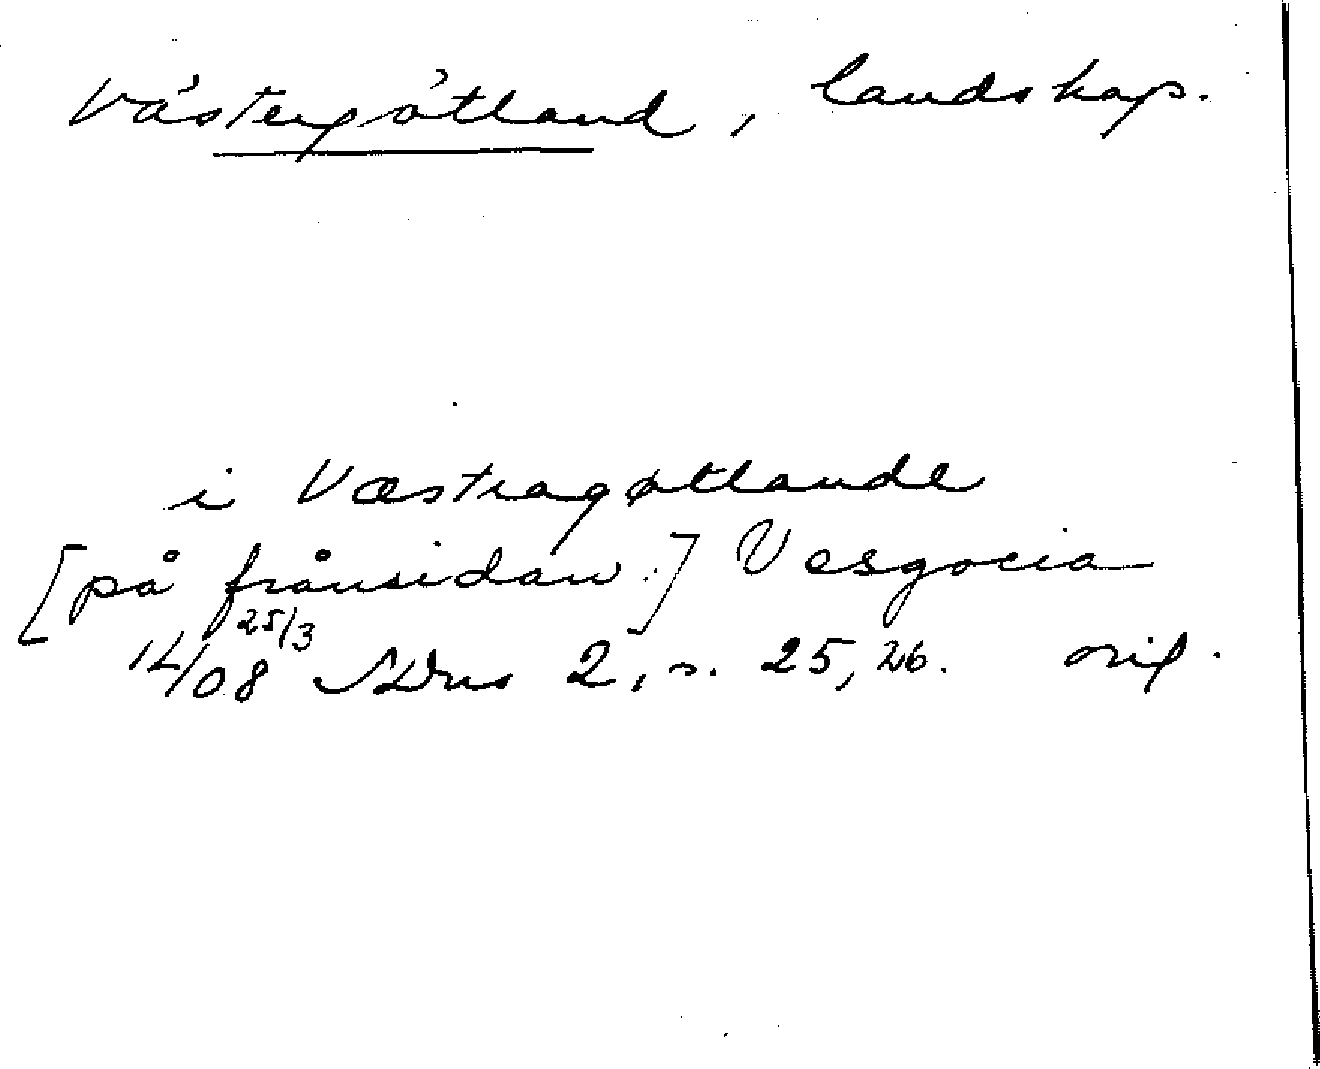 Västergötland, landskap.
i Væstragøtlande
[på frånsidan:] Vesgocia
14/08 25/3 SDns 2, s. 25, 26. orig.